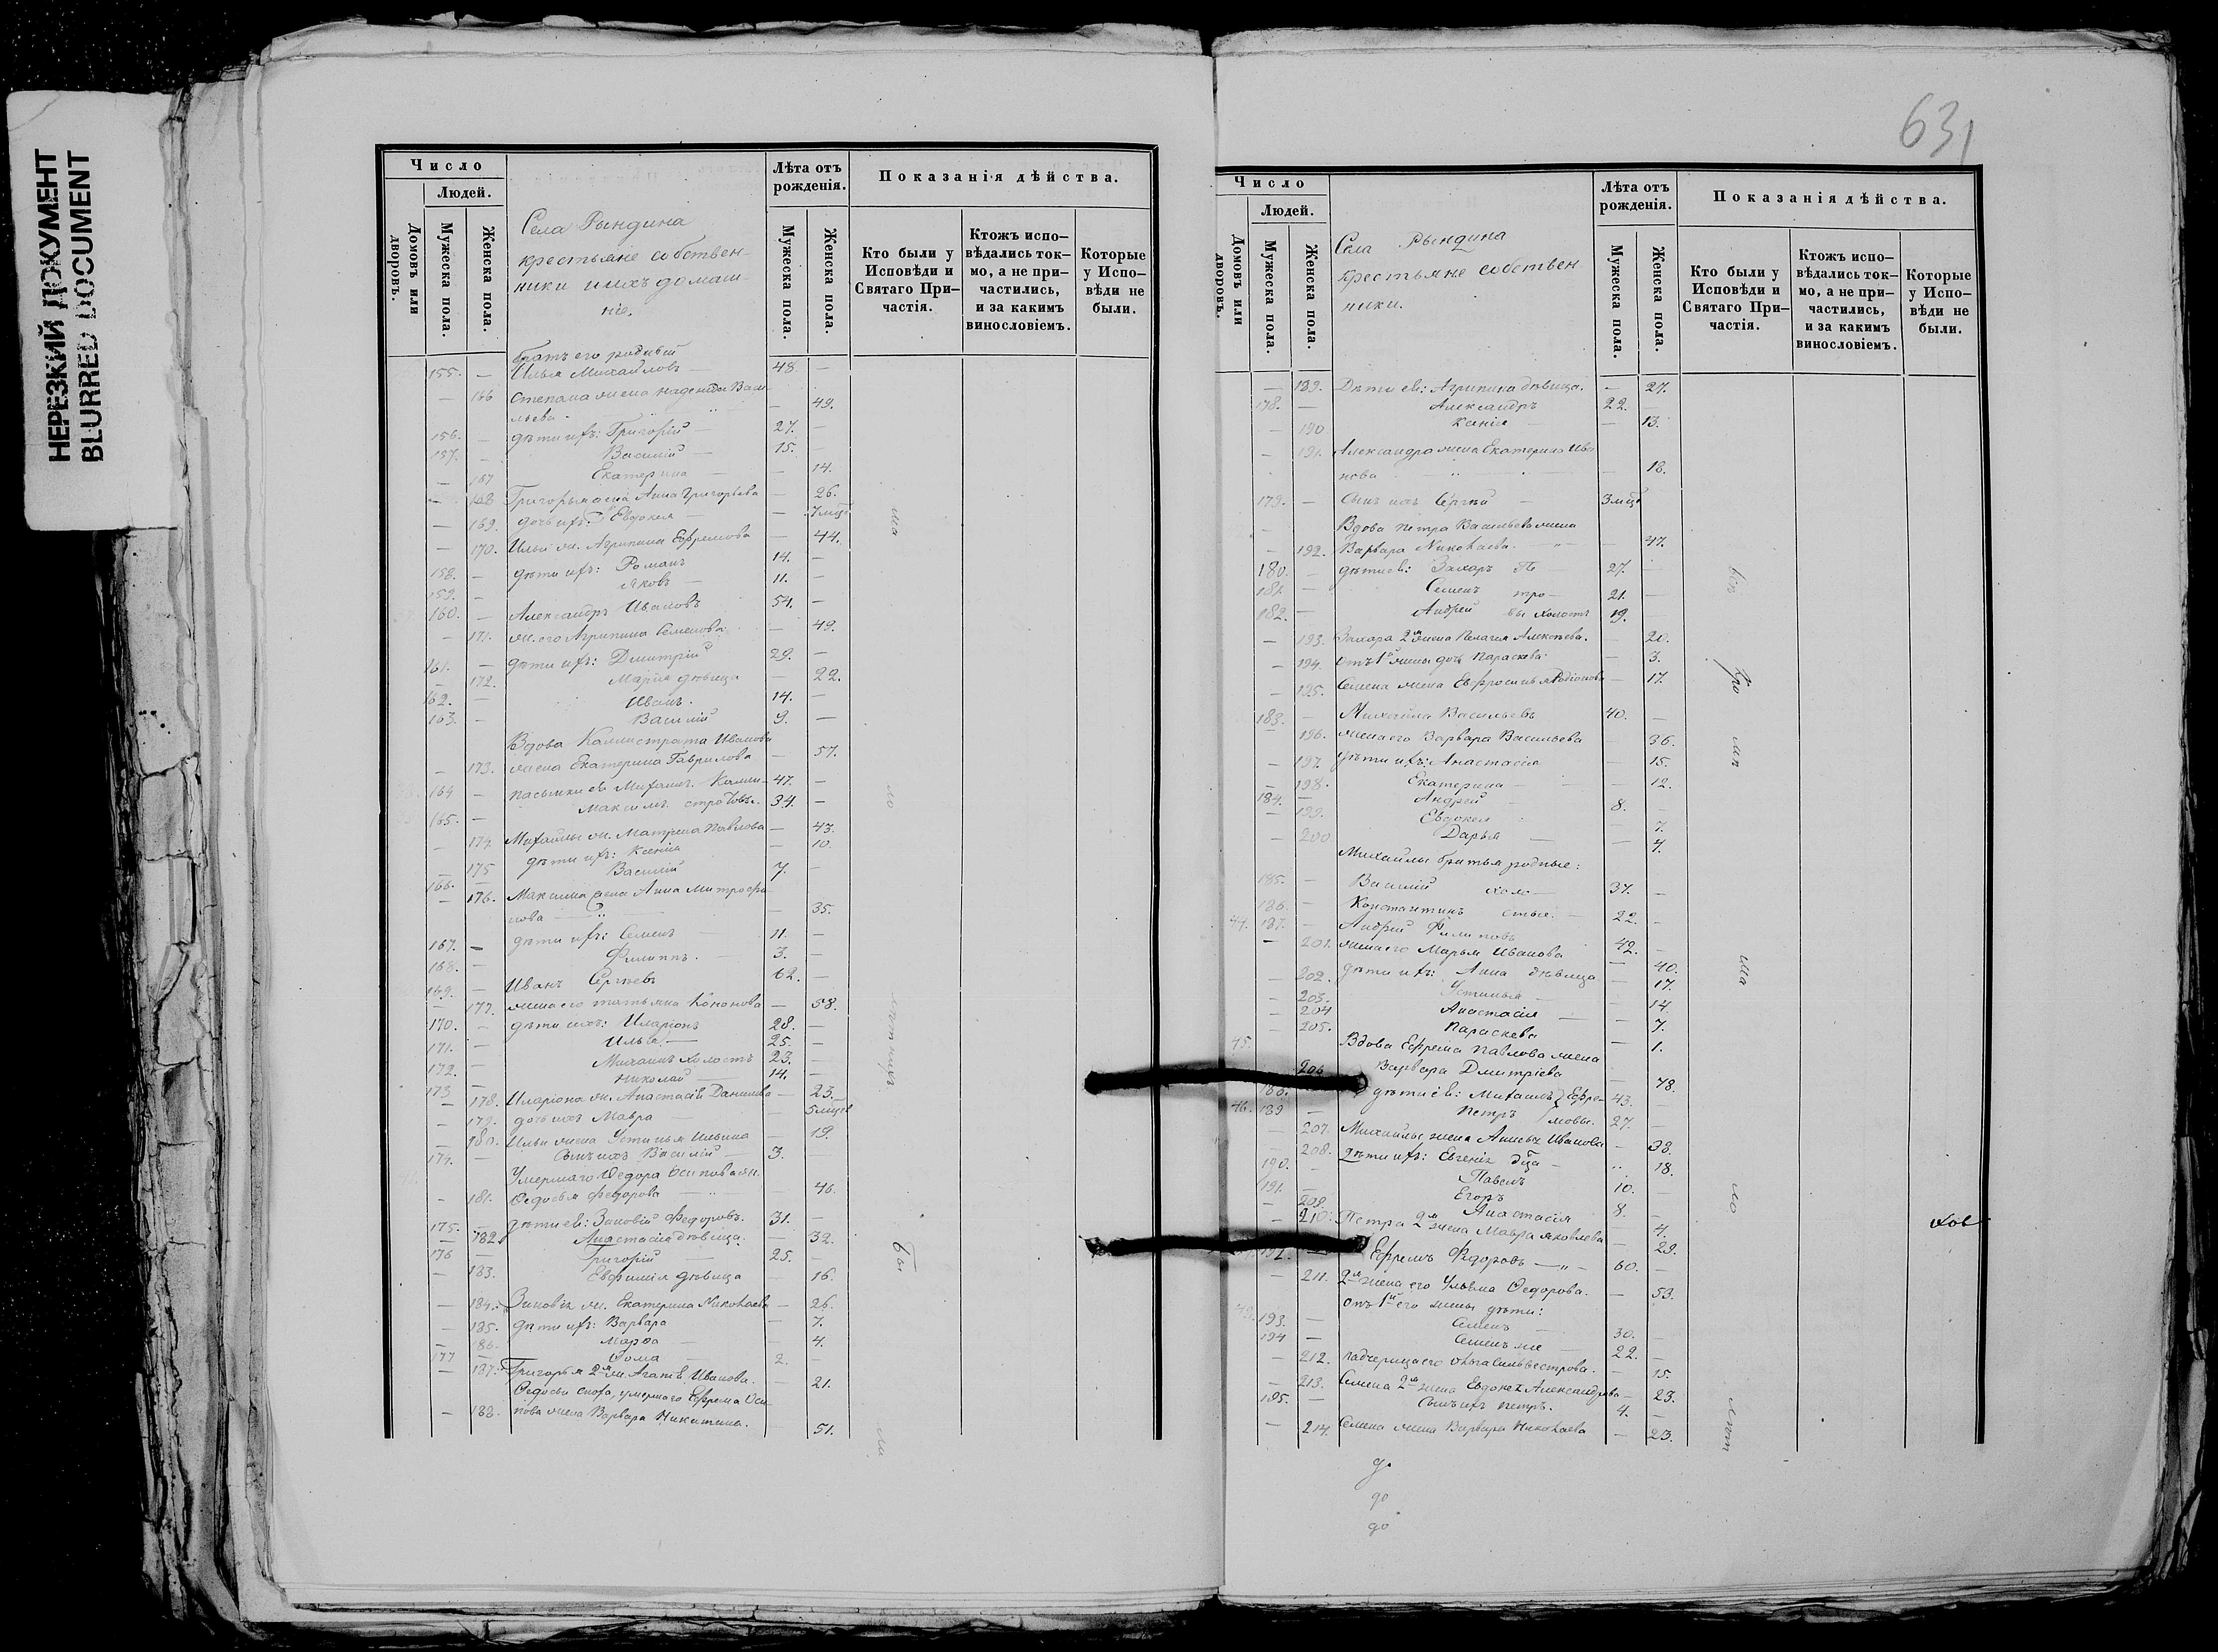 НЕРЕЗКИЙ ДОКУМЕНТ
BLURRED DOCUMENT
Число
Людей.
Домовъ или дворовъ.
Мужеска пола.
Женска пола.
Села Рындина
крестьяне собствен-
ники и ихъ домаш
ніе.
Лѣта отъ рожденія.
Мужеска пола.
Женска пола.
Показанія дѣйства.
Кто были у Исповѣди и Святаго При-частія.
Ктожъ испо-вѣдались ток-мо, а не при-частились, и за какимъ винословіемъ.
Которые у Испо-вѣди не были.
братъ его родный
155. — Илья Михайловъ — 48. —
— 166 Степана жена Надежда Васи-
льева — 49.
156. — дѣти ихъ: Григорій — 27. —
157. — Василій — 15. —
— 167 Екатерина — — 14.
— 168 Григорья жена Анна Григорьева — 26.
— 169. дочь ихъ Евдокия — — 7 мцъ
— 170. Ильи ж. Агрипина Ефремова — 44.
158. — дѣти ихъ: Романъ 14. —
159. — Яковъ — 11. —
160. — Александръ Ивановъ 54. —
— 171. ж. его Агрипина Семенова — 49.
161. — дѣти ихъ: Дмитрій 29. —
— 172. Марія дѣвица — 22.
162. — Иванъ. 14. —
163. — Василій 9. —
Вдова Каллистрата Иванова
— 173. жена Екатерина Гаврилова — 57.
164 — пасынки ея Михаилъ Калли- 47. —
165. — Максимъ стратовы. 34. —
— 174. Михайлы ж. Матрена Павлова — 43.
— 175 дѣти ихъ: Ксенія — 10.
166. — Василій 7. —
— 176. Максима жена Анна Митрофа-
нова — 35.
167. — дѣти ихъ: Семенъ — 11. —
168. — Филиппъ. — 3. —
169. — Иванъ Сергѣевъ 62. —
— 177. жена его Татьяна Кононова — 58.
170. — дѣти ихъ: Иларіонъ 28. —
171. — Илья — 25. —
172. — Михаилъ холостъ 23. —
173 — Николай — 14. —
— 178. Иларіона ж. Анастасія Данилова — 23.
— 179. дочь ихъ Мавра — 5 мцев
— 180. Ильи жена Устинья Ильина — 19.
174. — Сынъ ихъ Василій — 3. —
Умершаго Ѳедора Осипова ж.
— 181. Ѳедосья Федорова — 46.
175. — дѣти ея: Зиновій Федоровъ. 31. —
— 182. Анастасія дѣвица. — 32.
176 — Григорій 25. —
— 183. Евфимія дѣвица — 16.
— 184. Зиновія ж. Екатерина Николаева — 26.
— 185. дѣти ихъ: Варвара — 7.
— 186. Марѳа — — 4.
177 — Ѳома — 2. —
— 187. Григорья 2я ж. Агаѳія Иванова. — 21.
Ѳедосьи сноха, умершаго Ефрема Оси-
— 188. пова жена Варвара Никитина. 51.
бы
ли
631
Число
Людей.
Домовъ или дворовъ.
Мужеска пола.
Женска пола.
Села Рындина
крестьяне собствен
ники.
Лѣта отъ рожденія.
Мужеска пола.
Женска пола.
Показанія дѣйства.
Кто были у Исповѣди и Святаго При-частія.
Ктожъ испо-вѣдались ток-мо, а не при-частились, и за какимъ винословіемъ.
Которые у Испо-вѣди не были.
— 189. Дѣти ея: Агрипина дѣвица. — 27.
178. — Александръ 22. —
— 190 Ксенія — — 13.
— 191. Александра жена Екатерина Ива
нова — 18.
179. — Сынъ ихъ Сергѣй — 3 мцѣ
Вдова Петра Васильева жена
— 192. Варвара Николаева. — 47.
180. — дѣти ея: Захаръ Пе — 27. —
181. — Семенъ тро — 21. —
182. — Андрей вы холостъ 19. —
— 193. Захара 2я жена Пелагея Алексѣева. — 20.
— 194. Отъ 1й жены дочь Параскева — 3.
— 195. Семена жена Евфросинья Родіонова — 17.
183. — Михайла Васильевъ 40. —
— 196. жена его Варвара Васильева — 36.
— 197. дѣти ихъ: Анастасія — 15.
— 198. Екатерина — 12.
184. — Андрей 8. —
— 199. Евдокея 7.
— 200 Дарья — 4.
Михайлы братья родные:
185. — Василій холо — 37. —
186. — Константинъ стые. — 22. —
44. 187. — Андрей Филиповъ 42. —
— 201. жена его Марья Иванова — 40.
— 202. дѣти ихъ: Анна дѣвица — 17.
— 203. Устинья — 14.
— 204 Анастасія — 7.
— 205. Параскева — 1.
45. Вдова Ефрема Павлова жена
206 Варвара Дмитріева — 78.
188. дѣти ея: Михаилъ Ефре- 43. —
46. 189 — Петръ мовы. 27. —
— 207. Михайлы жена Анисья Иванова — 38.
— 208. дѣти ихъ: Евгенія дца — 18.
190. — Павелъ 10. —
191. — Егоръ 8. —
— 209. Анастасія — 4.
— 210. Петра 2я жена Мавра Яковлева — 29.
192. Ефремъ Федоровъ — 60. —
— 211. 2я жена его Ульяна Ѳедорова. — 53.
Отъ 1й его жены дѣти:
193. — Семенъ 30. —
194 — Семенъ же — 22. —
— 212. падчерица его Ольга Сильвестрова. — 15.
— 213. Семена 2я жена Евдокея Александрова — 23.
195. — Сынъ ихъ Петръ. 4. —
— 214. Семена жена Варвара Николаева — 23.
до
до